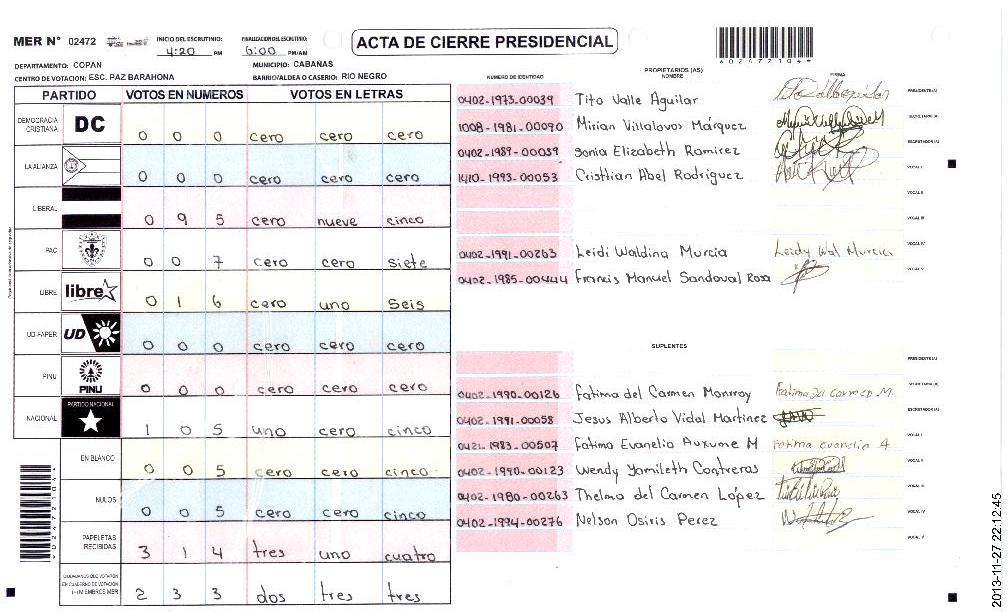 MER N° 02472
INICIO DEL ESCRUTINIO: 4:20 PM
FINALIZACION DEL ESCRUTINIO: 6:00 PM/AM
ACTA DE CIERRE PRESIDENCIAL
DEPARTAMENTO: COPAN
MUNICIPIO: CABAÑAS
CENTRO DE VOTACION: ESC. PAZ BARAHONA
BARRIO/ALDEA O CASERIO: RIO NEGRO
PARTIDO VOTOS EN NUMEROS VOTOS EN LETRAS
DEMOCRACIA CRISTIANA DC 0 0 0 cero cero cero
LA ALIANZA 0 0 0 cero cero cero
LIBERAL 0 9 5 cero nueve cinco
PAC 0 0 7 cero cero siete
LIBRE libre 0 1 6 cero uno Seis
UD-FAPER UD 0 0 0 cero cero cero
PINU PINU 0 0 0 cero cero cero
NACIONAL PARTIDO NACIONAL 1 0 5 uno cero cinco
EN BLANCO 0 0 5 cero cero cinco
NULOS 0 0 5 cero cero cinco
PAPELETAS RECIBIDAS 3 1 4 tres uno cuatro
CIUDADANOS QUE VOTARON EN CUADERNO DE VOTACION (+) MIEMBROS MER 2 3 3 dos tres tres
NUMERO DE IDENTIDAD
PROPIETARIOS (AS)
NOMBRE
FIRMA
0402-1973-00039 Tito Valle Aguilar PRESIDENTE(A)
1008-1981-00090 Mirian Villalovos Márquez SECRETARIO(A)
0402-1989-00039 Sonia Elizabeth Ramirez ESCRUTADOR(A)
1410-1993-00053 Cristhian Abel Rodriguez VOCAL I
VOCAL II
VOCAL III
0402-1991-00263 Leidi Waldina Murcia Leidy Wal Murcia VOCAL IV
0402-1985-00444 Francis Manuel Sandoval Rosa VOCAL V
SUPLENTES
PRESIDENTE(A)
0402-1990-00126 Fatima del Carmen Monroy Fatima del Carmen M. SECRETARIO(A)
0402-1991-00058 Jesus Alberto Vidal Martinez ESCRUTADOR(A)
0421-1983-00507 Fatima Evanelio Auxume M Fatima evanelio A VOCAL I
0402-1990-00123 Wendy Yamileth Contreras VOCAL II
0402-1980-00263 Thelma del Carmen López VOCAL III
0402-1994-00276 Nelson Osiris Perez VOCAL IV
VOCAL V
2013-11-27 22:12:45